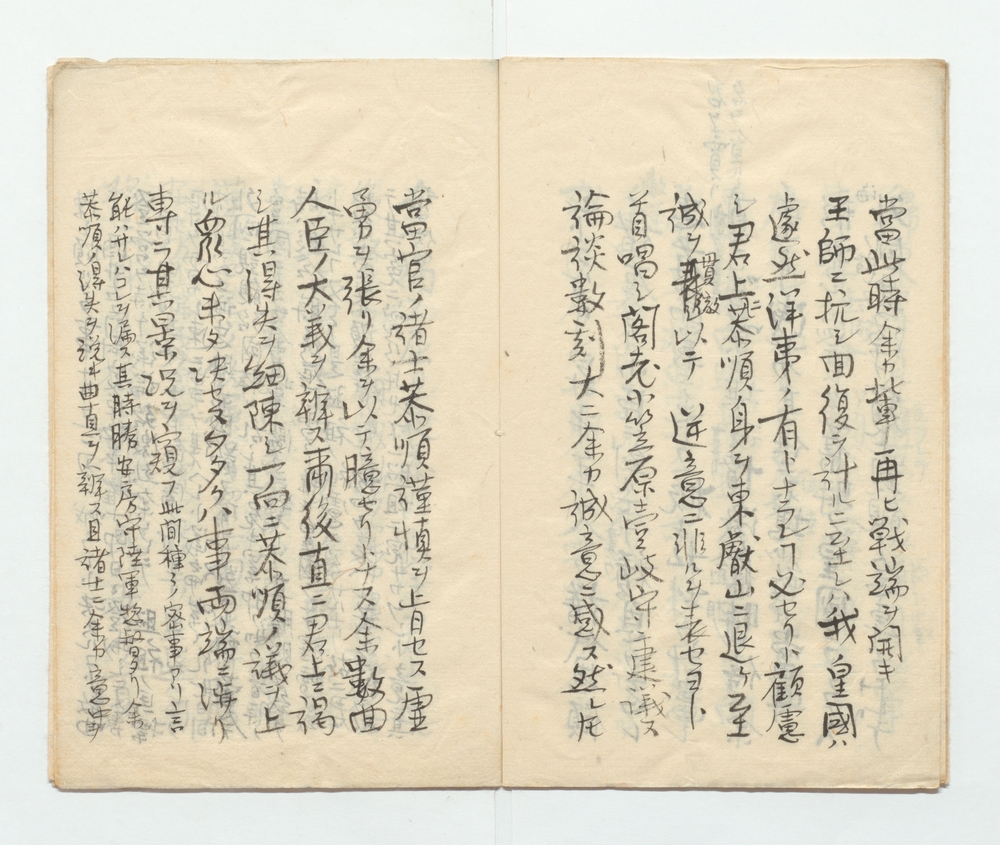 當此時余カ輩再ヒ戰端ヲ開キ
王師ニ抗シ回復ヲ計ルニ至レハ我 皇國ハ
遽然洋夷ノ有トナランヿ必セリト顧慮
シ君上ニ恭順身ヲ東叡山ニ退ケ至
誠ヲ貫徹以テ 逆意ニ非ルヲ表セヨト
首唱シ閣老小笠原壹岐守ニ建議ス
論談數刻大ニ余カ誠意ニ感ス然レ𪜈
當官ノ諸士恭順謹慎ヲ上旨セス虚
勇ヲ張リ余ヲ以テ臆セリトナス余數回
人臣ノ大義ヲ辨ス爾後直ニ君上ニ謁
シ其得失ヲ細陳シ一向ニ恭順ノ議ヲ上
ル衆心未タ決セス夕々ハ事両端ニ渉リ
専ラ其景況ヲ窺フ此間種々ノ密事アリ言
能ハサレハコレヲ漏ス其時勝安房守陸軍惣督タリ余
恭順ノ得失ヲ説キ曲直ヲ辨ス且諸士ニ余カ意中